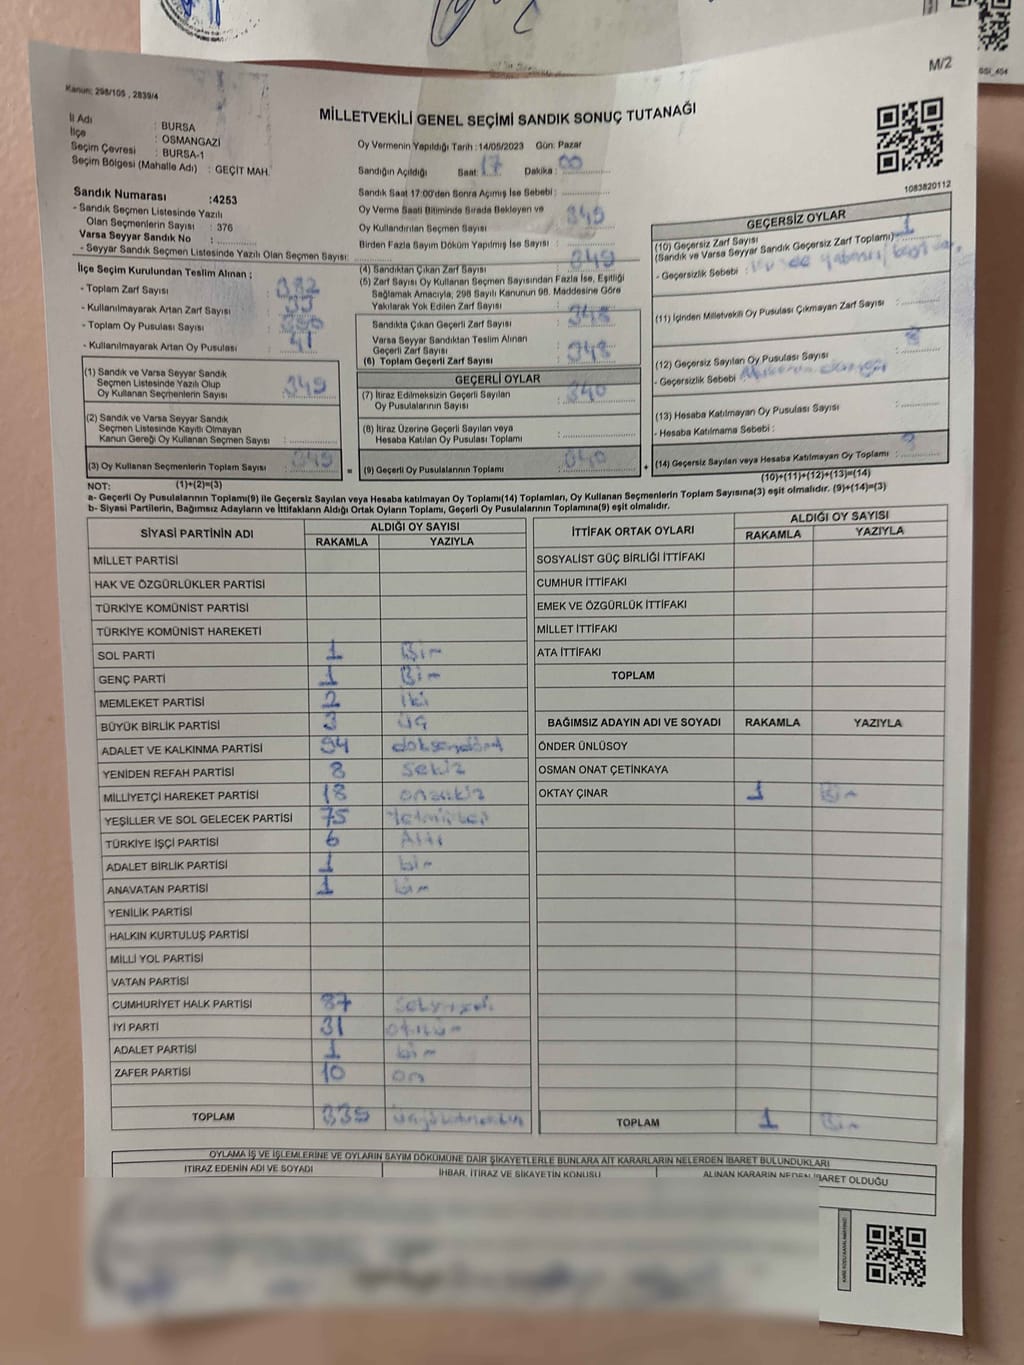 M/2
GSI_404
Kanun: 298/105 , 2839/4
MİLLETVEKİLİ GENEL SEÇİMİ SANDIK SONUÇ TUTANAĞI
İl Adı : BURSA
İlçe : OSMANGAZİ
Seçim Çevresi : BURSA-1
Seçim Bölgesi (Mahalle Adı) : GEÇİT MAH.
Sandık Numarası :4253
- Sandık Seçmen Listesinde Yazılı
Olan Seçmenlerin Sayısı : 376
Varsa Seyyar Sandık No :
- Seyyar Sandık Seçmen Listesinde Yazılı Olan Seçmen Sayısı:
Oy Vermenin Yapıldığı Tarih :14/05/2023 Gün: Pazar
Sandığın Açıldığı Saat: 17 Dakika : 00
Sandık Saat 17:00'den Sonra Açımış İse Sebebi :
Oy Verme Saati Bitiminde Sırada Bekleyen ve
Oy Kullandırılan Seçmen Sayısı 349
Birden Fazla Sayım Döküm Yapılmış İse Sayısı :
1083820112
İlçe Seçim Kurulundan Teslim Alınan :
- Toplam Zarf Sayısı 382
- Kullanılmayarak Artan Zarf Sayısı : 33
- Toplam Oy Pusulası Sayısı :
- Kullanılmayarak Artan Oy Pusulası : 41
(1) Sandık ve Varsa Seyyar Sandık
Seçmen Listesinde Yazılı Olup
Oy Kullanan Seçmenlerin Sayısı 349
(2) Sandık ve Varsa Seyyar Sandık
Seçmen Listesinde Kayıtlı Olmayan
Kanun Gereği Oy Kullanan Seçmen Sayısı :
(3) Oy Kullanan Seçmenlerin Toplam Sayısı : 349
(1)+(2)=(3)
(4) Sandıktan Çıkan Zarf Sayısı 349
(5) Zarf Sayısı Oy Kullanan Seçmen Sayısından Fazla İse, Eşitliği
Sağlamak Amacıyla, 298 Sayılı Kanunun 98. Maddesine Göre
Yakılarak Yok Edilen Zarf Sayısı :
Sandıkta Çıkan Geçerli Zarf Sayısı 348
Varsa Seyyar Sandıktan Teslim Alınan
Geçerli Zarf Sayısı
(6) Toplam Geçerli Zarf Sayısı : 348
GEÇERLİ OYLAR
(7) İtiraz Edilmeksizin Geçerli Sayılan
Oy Pusulalarının Sayısı : 340
(8) İtiraz Üzerine Geçerli Sayılan veya
Hesaba Katılan Oy Pusulası Toplamı :
(9) Geçerli Oy Pusulalarının Toplamı : 340
GEÇERSİZ OYLAR
(10) Geçersiz Zarf Sayısı
(Sandık ve Varsa Seyyar Sandık Geçersiz Zarf Toplamı) : 1
- Geçersizlik Sebebi :
(11) İçinden Milletvekili Oy Pusulası Çıkmayan Zarf Sayısı :
(12) Geçersiz Sayılan Oy Pusulası Sayısı : 8
- Geçersizlik Sebebi
(13) Hesaba Katılmayan Oy Pusulası Sayısı :
- Hesaba Katılmama Sebebi :
(14) Geçersiz Sayılan veya Hesaba Katılmayan Oy Toplamı : 9
(10)+(11)+(12)+(13)=(14)
NOT:
a- Geçerli Oy Pusulalarının Toplamı(9) ile Geçersiz Sayılan veya Hesaba katılmayan Oy Toplamı(14) Toplamları, Oy Kullanan Seçmenlerin Toplam Sayısına(3) eşit olmalıdır. (9)+(14)=(3)
b- Siyasi Partilerin, Bağımsız Adayların ve İttifakların Aldığı Ortak Oyların Toplamı, Geçerli Oy Pusulalarının Toplamına(9) eşit olmalıdır.
SİYASİ PARTİNİN ADI ALDIĞI OY SAYISI
RAKAMLA YAZIYLA
MİLLET PARTİSİ
HAK VE ÖZGÜRLÜKLER PARTİSİ
TÜRKİYE KOMÜNİST PARTİSİ
TÜRKİYE KOMÜNİST HAREKETİ
SOL PARTİ 1 Bir
GENÇ PARTİ 1 Bir
MEMLEKET PARTİSİ 2 iki
BÜYÜK BİRLİK PARTİSİ 3 üç
ADALET VE KALKINMA PARTİSİ 94 doksandört
YENİDEN REFAH PARTİSİ 8 sekiz
MİLLİYETÇİ HAREKET PARTİSİ 18 onsekiz
YEŞİLLER VE SOL GELECEK PARTİSİ 75 Yetmişbeş
TÜRKİYE İŞÇİ PARTİSİ 6 Altı
ADALET BİRLİK PARTİSİ 1 bir
ANAVATAN PARTİSİ 1 bir
YENİLİK PARTİSİ
HALKIN KURTULUŞ PARTİSİ
MİLLİ YOL PARTİSİ
VATAN PARTİSİ
CUMHURİYET HALK PARTİSİ 87 Seksenyedi
İYİ PARTİ 31 otuzbir
ADALET PARTİSİ 1 bir
ZAFER PARTİSİ 10 on
TOPLAM 339
İTTİFAK ORTAK OYLARI ALDIĞI OY SAYISI
RAKAMLA YAZIYLA
SOSYALİST GÜÇ BİRLİĞİ İTTİFAKI
CUMHUR İTTİFAKI
EMEK VE ÖZGÜRLÜK İTTİFAKI
MİLLET İTTİFAKI
ATA İTTİFAKI
TOPLAM
BAĞIMSIZ ADAYIN ADI VE SOYADI RAKAMLA YAZIYLA
ÖNDER ÜNLÜSOY
OSMAN ONAT ÇETİNKAYA
OKTAY ÇINAR 1 Bir
TOPLAM 1 Bir
OYLAMA İŞ VE İŞLEMLERİNE VE OYLARIN SAYIM DÖKÜMÜNE DAİR ŞİKAYETLERLE BUNLARA AİT KARARLARIN NELERDEN İBARET BULUNDUKLARI
İTİRAZ EDENİN ADI VE SOYADI İHBAR, İTİRAZ VE ŞİKAYETİN KONUSU ALINAN KARARIN NEDEN İBARET OLDUĞU